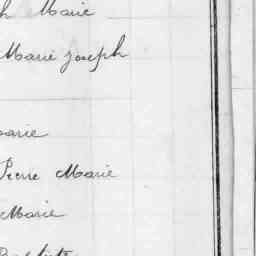 h Marie
Marie Joseph
Marie
Pierre Marie
Marie
Baptiste